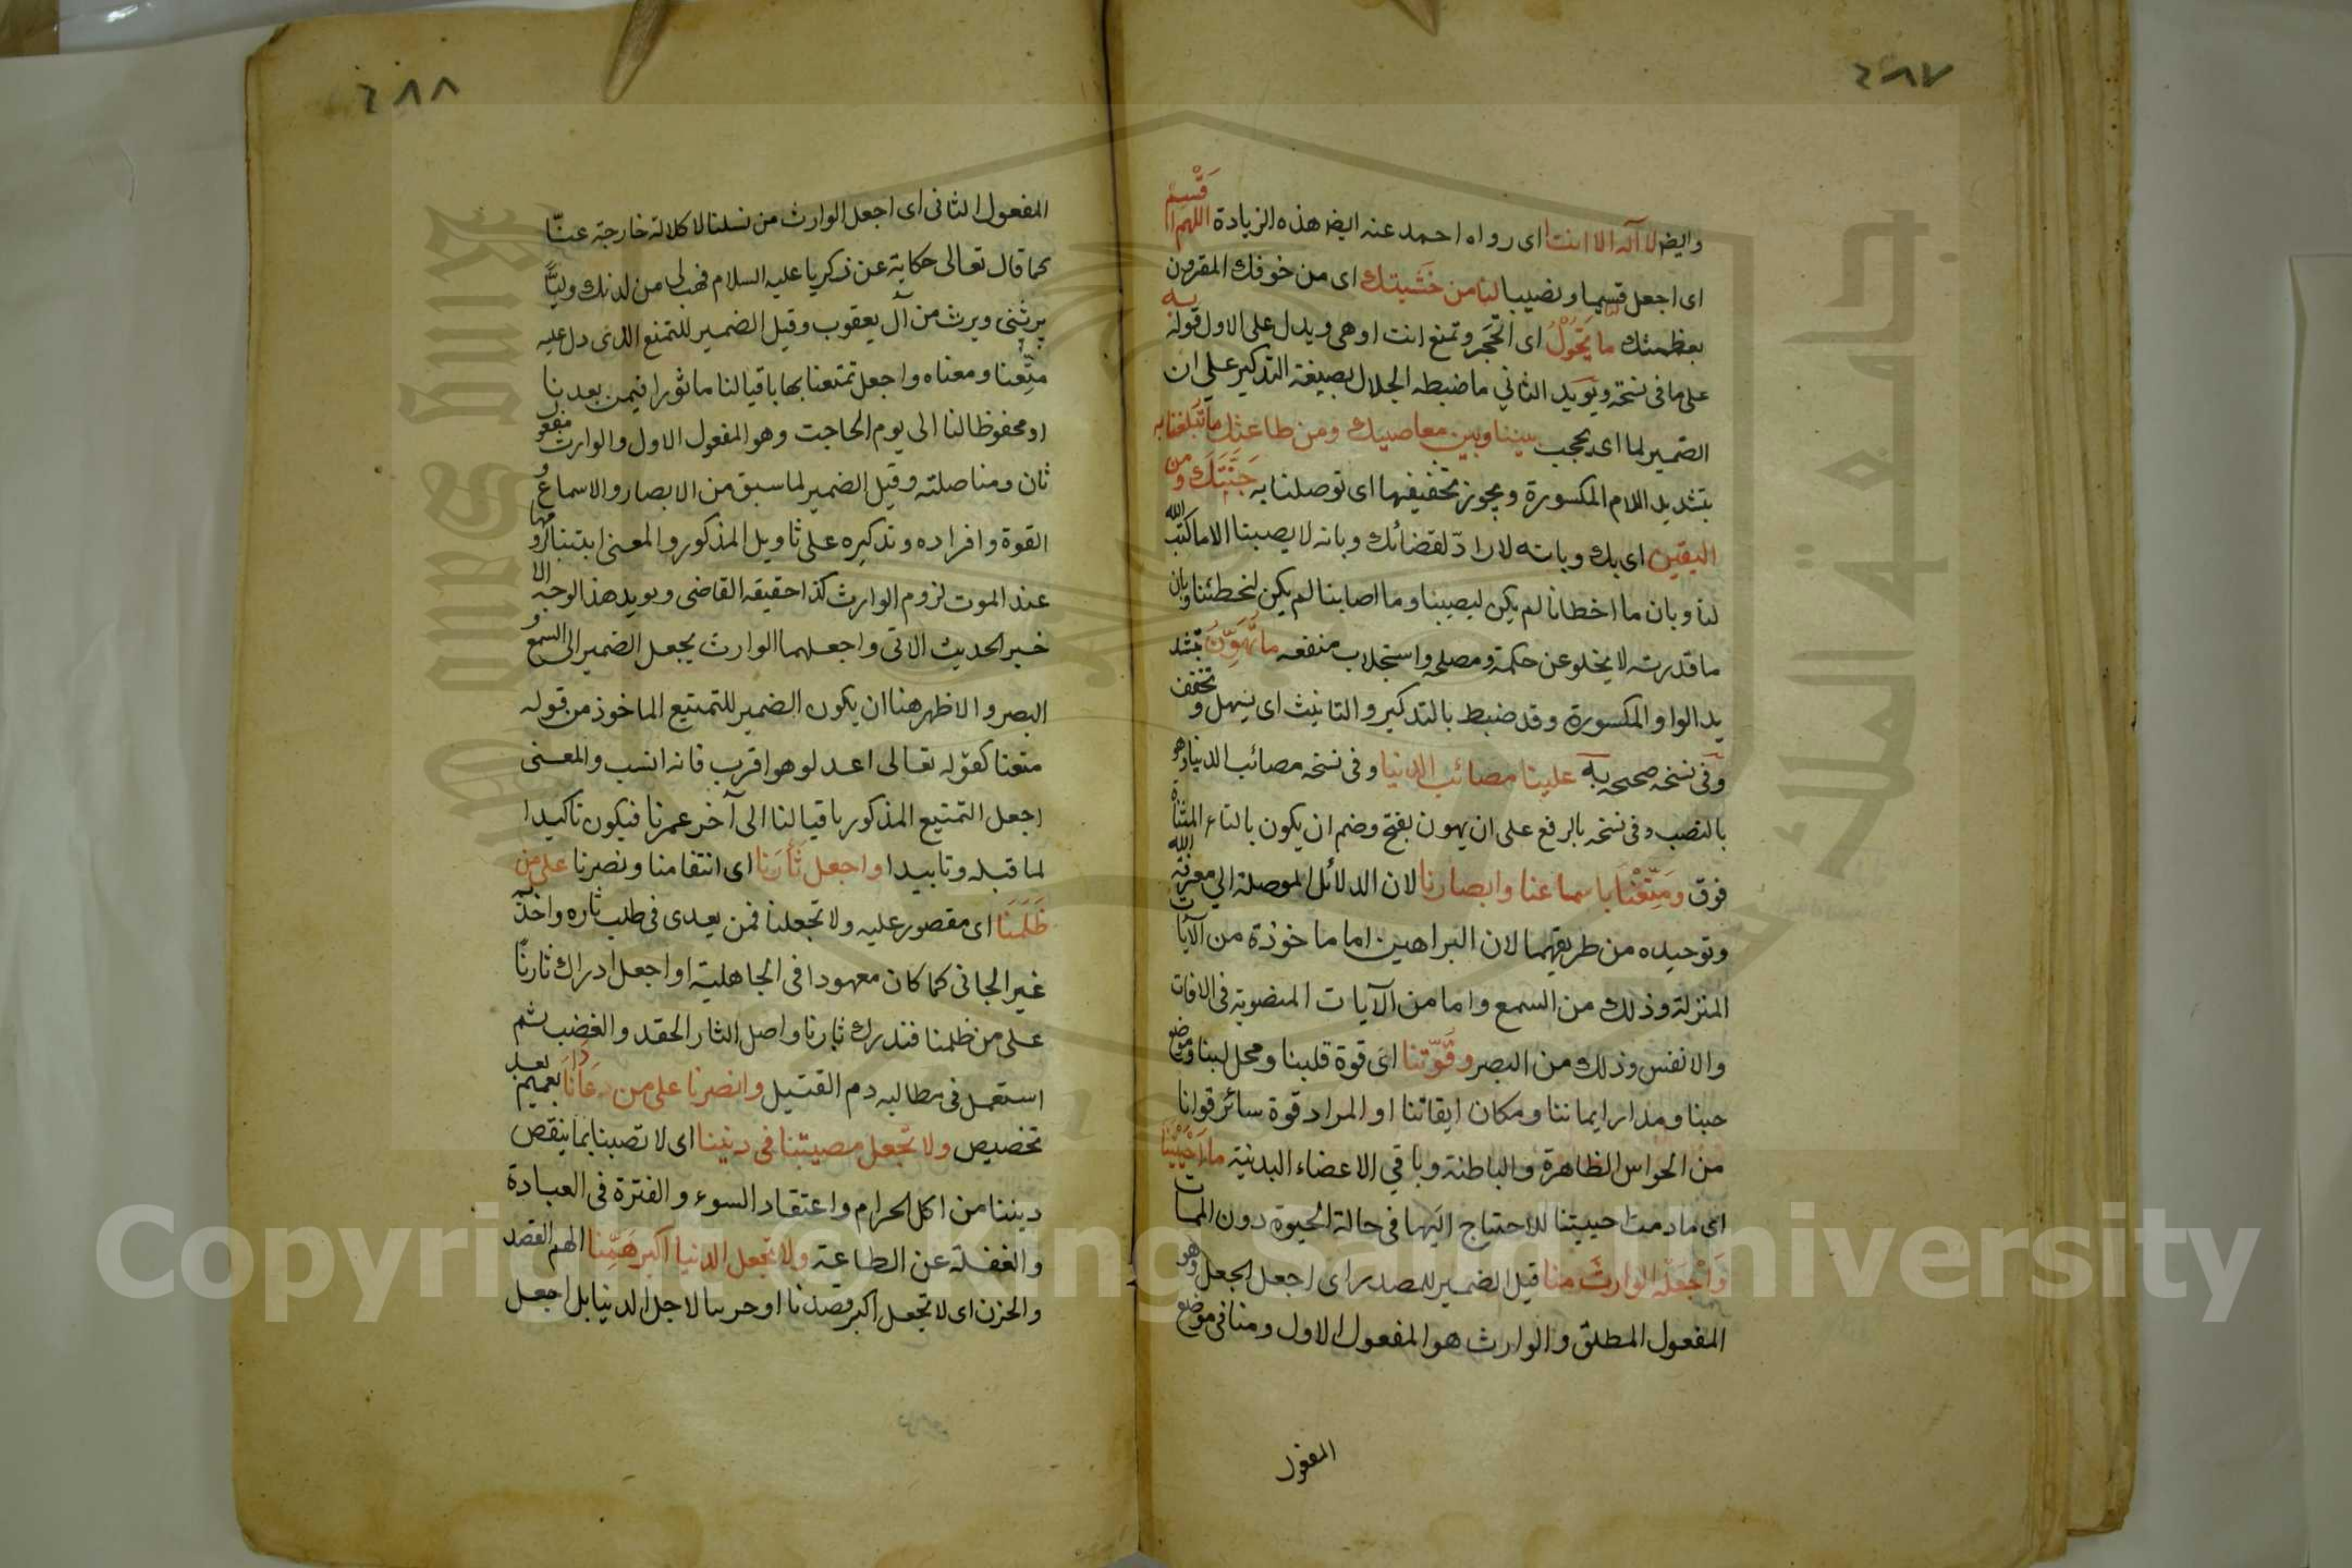 ٤٨٧
وايضا لا آله الا انت اى رواه احمد عنه ايض هذه الزيادة اللهم اقْسِمْ
اى اجعل قسما ونصيبا لنا من خَشْيتك اى من خوفك المقرون
بعظمتك ما يَحُوْلُ به اى اتحجر وتمنع انت او هى ويدل على الاول قوله
على ما فى نسخة ويؤيد الثاني ما ضبطه الجلال بصيغة التذكير على ان
الضمير لما اى يحجب بيننا وبين معاصيك ومن طاعتك ما تُبلغنا به
بتشديد اللام المكسورة ويجوز تخفيفها اى توصلنا به جَنَّتَكَ ومن
اليقين اى بك وبانه لا رادّ لقضائك وبانه لا يصيبنا الا ما كتب الله
لنا وبان ما اخطانا لم يكن ليصيبنا وما اصابنا لم يكن ليخطئنا وبان
ما قدرته لا يخلو عن حكمة ومصلحة واستجلاب منفعه ما تُهَوِّنُ بتشد
يد الواو المكسورة وقد ضبط بالتذكير والتانيث اى يسهل وتخفف
وفى نسخه صحيحه به علينا مصائب الدنيا وفى نسخه مصائب الدنيا وهو
بالنصب وفى نسخه بالرفع على ان يهون بفتح وضم ان يكون بالتاء المثناة
فوق ومَتِّعْنَا باسماعنا وابصارنا لان الدلائل الموصلة الي معرفة الله
وتوحيده من طريقهما لان البراهين اما ماخوذة من الآيات
المنزلة وذلك من السمع واما من الآيات المنصوبة فى الافات
والانفس وذلك من البصر وقُوّتنا اى قوة قلبنا ومحل لبنا وموضع
حبنا ومدار ايماننا ومكان ايقاننا او المراد قوة سائر قوانا
من الحواس الظاهرة والباطنة وباقي الاعضاء البدنية ما اَحْيَيْتَنَا
اى ما دمت احييتنا للاحتياج اليها فى حالة الحيوة دون الممات
وَاجْعَلْهُ الوارثَ منا قيل الضمير للمصدر اى اجعل الجعل وهو
المفعول المطلق والوارث هو المفعول الاول ومنا فى موضع
المفعول
٤٨٨
المفعول الثانى اى اجعل الوارث من نسلنا لا كلالة خارجة عنّا
كما قال تعالى حكاية عن زكريا عليه السلام فهب لى من لدنك وليًّا
يرثنى ويرث من آل يعقوب وقيل الضمير للتمتع الذى دل عليه
متّعنا ومعناه واجعل تمتعنا بها باقيا لنا ماثورا فيمن بعدنا
او محفوظا لنا الى يوم الحاجت وهو المفعول الاول والوارث مفعو
ثان ومنا صلته وقيل الضمير لما سبق من الابصار والاسماع و
القوة وافراده وتذكيره على تاويل المذكور والمعنى لزومها
عند الموت لزوم الوارث كذا حقيقه القاضى ويويد هذا الوجه الا
خير الحديث الاتى واجعلهما الوارث يجعل الضمير الى السمع و
البصر والاظهر هنا ان يكون الضمير للتمتيع الماخوذ من قوله
متعنا كقوله تعالى اعدلو هو اقرب فانه انسب والمعنى
اجعل التمتيع المذكور باقيا لنا الى آخر عمرنا فيكون تاكيدا
لما قبله وتابيدا واجعل ثَأْرَنا اى انتقامنا ونصرنا على من
ظَلَمَنَا اى مقصور عليه ولا تجعلنا فمن يعدى فى طلب ثاره واخذ به
غير الجانى كما كان معهودا فى الجاهلية او اجعل ادراك ثارنًا
على من ظلمنا فندرك ثارنا واصل الثار الحقد والغضب ثم
استعمل فى مطالبه دم القتيل وانصرنا على من عَادَانَا تعميم بعد
تخصيص ولا تجعل مصيبتنا فى ديننا اى لا تصبنا بما ينقص
ديننا من اكل الحرام واعتقاد السوء والفترة فى العبادة
والغفلة عن الطاعة ولا تجعل الدنيا اكبر هَمِّنا الهم القصد
والحزن اى لا تجعل اكبر قصدنا او حربنا لاجل الدنيا بل اجعل
جامعة الملك
King Saud
Copyright © King Saud University